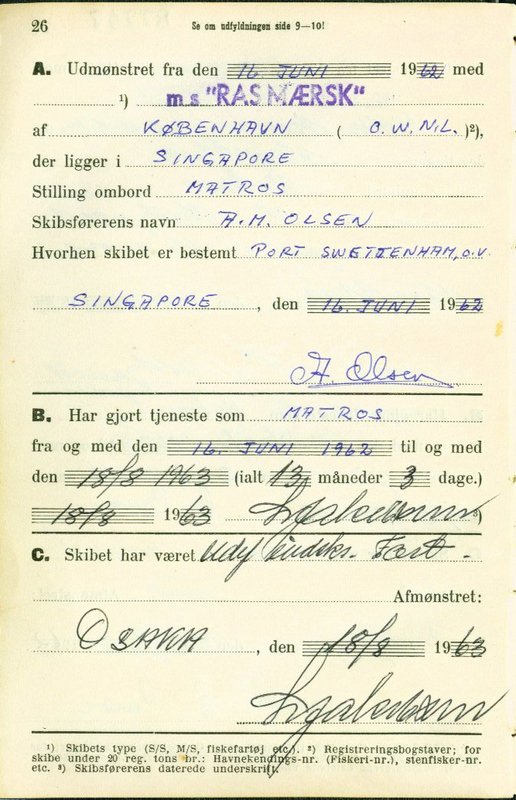 26
Se om udfyldningen side 9—10!
A. Udmønstret fra den 16 JUNI 1962 med
¹) m s "RAS MÆRSK"
af KØBENHAVN ( O.W.N.L. )²),
der ligger i SINGAPORE
Stilling ombord MATROS
Skibsførerens navn A.M. OLSEN
Hvorhen skibet er bestemt PORT SWETTENHAM, O.V.
SINGAPORE, den 16. JUNI 1962
A. Olsen
B. Har gjort tjeneste som MATROS
fra og med den 16. JUNI 1962 til og med
den 18/8 1963 (ialt 13 måneder 3 dage.)
18/8 1963 ³)
C. Skibet har været Fart.
Afmønstret:
OSAKA, den 18/8 1963
¹) Skibets type (S/S, M/S, fiskefartøj etc.). ²) Registreringsbogstaver; for
skibe under 20 reg. tons br.: Havnekendings-nr. (Fiskeri-nr.), stenfisker-nr.
etc. ³) Skibsførerens daterede underskrift.